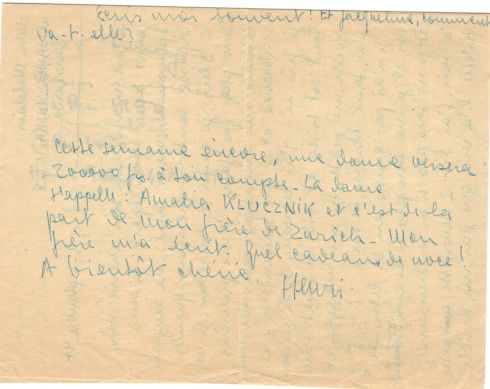 Ecris moi souvent! Et Jacqueline, comment
va-t-elle?
Cette semaine encore, une dame versera
200000 frs. à ton compte. La dame
s'appelle: Amalia KLUCZNIK et c'est de la
part de mon frère de Zurich. Mon
frère m'a écrit. Quel cadeau de noce!
A bientôt chérie,
Henri.